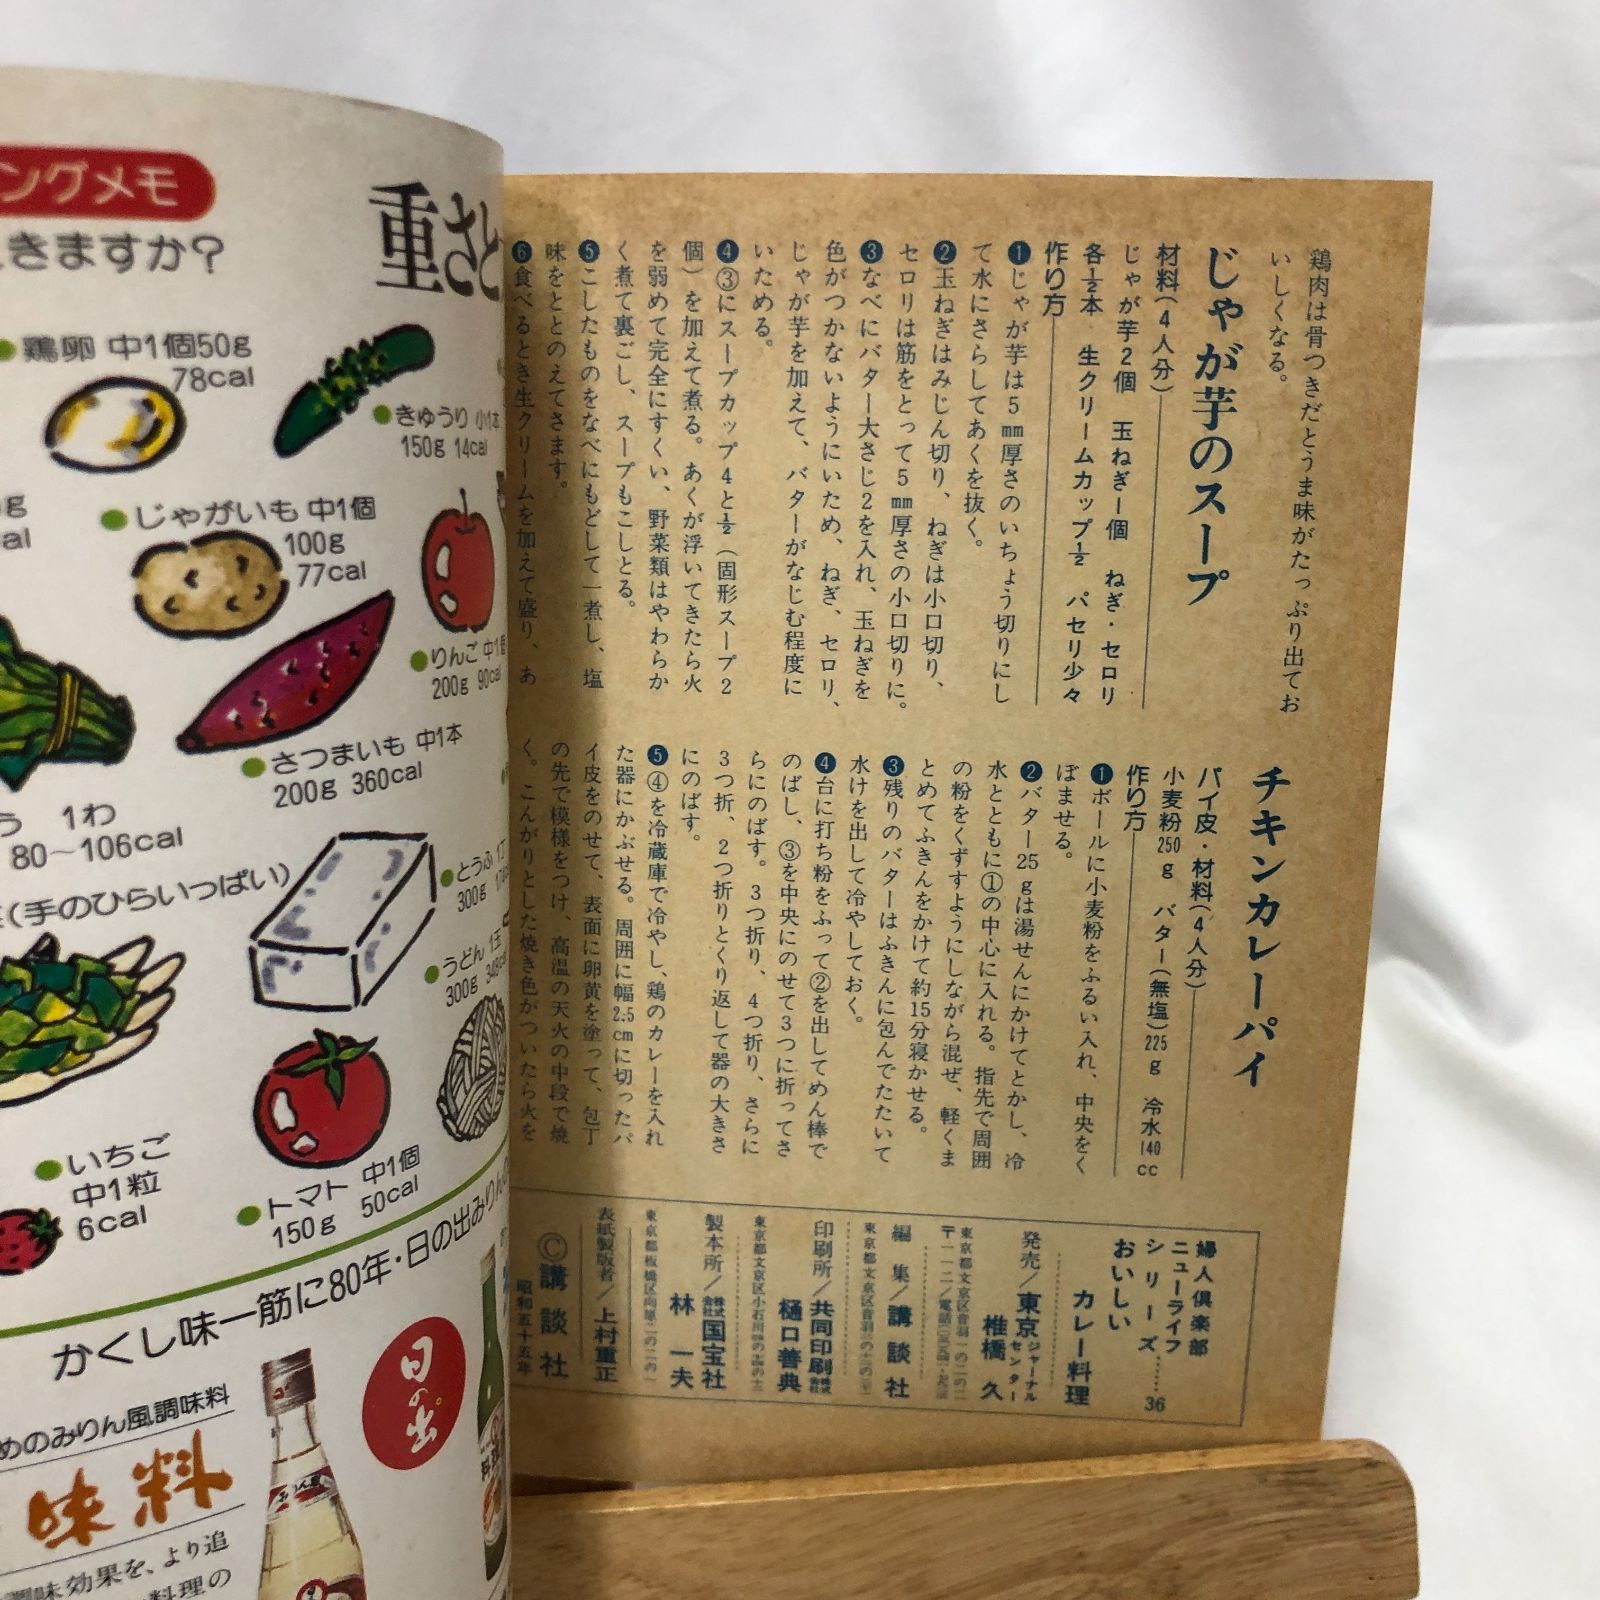 ングメモ
きますか？
重さと
鶏卵 中1個50g
78cal
きゅうり 小1本
150g 14cal
じゃがいも 中1個
100g
77cal
りんご 中1個
200g 90cal
さつまいも 中1本
200g 360cal
う 1わ
80〜106cal
(手のひらいっぱい)
とうふ 1丁
300g
うどん 1玉
300g
いちご
中1粒
6cal
トマト 中1個
150g 50cal
かくし味一筋に80年・日の出みりん
めのみりん風調味料
味料
日の出
調味効果を、より追
料理の
鶏肉は骨つきだとうま味がたっぷり出てお
いしくなる。
じゃが芋のスープ
材料(4人分)
じゃが芋2個 玉ねぎ1個 ねぎ・セロリ
各½本 生クリームカップ½ パセリ少々
作り方
❶じゃが芋は5㎜厚さのいちょう切りにし
て水にさらしてあくを抜く。
❷玉ねぎはみじん切り、ねぎは小口切り、
セロリは筋をとって5㎜厚さの小口切りに。
❸なべにバター大さじ2を入れ、玉ねぎを
色がつかないようにいため、ねぎ、セロリ、
じゃが芋を加えて、バターがなじむ程度に
いためる。
❹③にスープカップ4と½(固形スープ2
個)を加えて煮る。あくが浮いてきたら火
を弱めて完全にすくい、野菜類はやわらか
く煮て裏ごし、スープもこしとる。
❺こしたものをなべにもどして一煮し、塩
味をととのえてさます。
❻食べるとき生クリームを加えて盛り、あ
チキンカレーパイ
パイ皮・材料(4人分)
小麦粉250g バター(無塩)225g 冷水140cc
作り方
❶ボールに小麦粉をふるい入れ、中央をく
ぼませる。
❷バター25gは湯せんにかけてとかし、冷
水とともに①の中心に入れる。指先で周囲
の粉をくずすようにしながら混ぜ、軽くま
とめてふきんをかけて約15分寝かせる。
❸残りのバターはふきんに包んでたたいて
水けを出して冷やしておく。
❹台に打ち粉をふって②を出してめん棒で
のばし、③を中央にのせて3つに折ってさ
らにのばす。3つ折り、4つ折り、さらに
3つ折、2つ折りとくり返して器の大きさ
にのばす。
❺④を冷蔵庫で冷やし、鶏のカレーを入れ
た器にかぶせる。周囲に幅2.5cmに切ったパ
イ皮をのせて、表面に卵黄を塗って、包丁
の先で模様をつけ、高温の天火の中段で焼
く。こんがりとした焼き色がついたら火を
婦人倶楽部
ニューライフ
シリーズ……36
おいしい
カレー料理
発売/東京ジャーナルセンター
椎橋 久
編集/講談社
印刷所/共同印刷株式会社
樋口善典
製本所/株式会社国宝社
林 一夫
表紙製版者/上村重正
©講談社
昭和五十五年